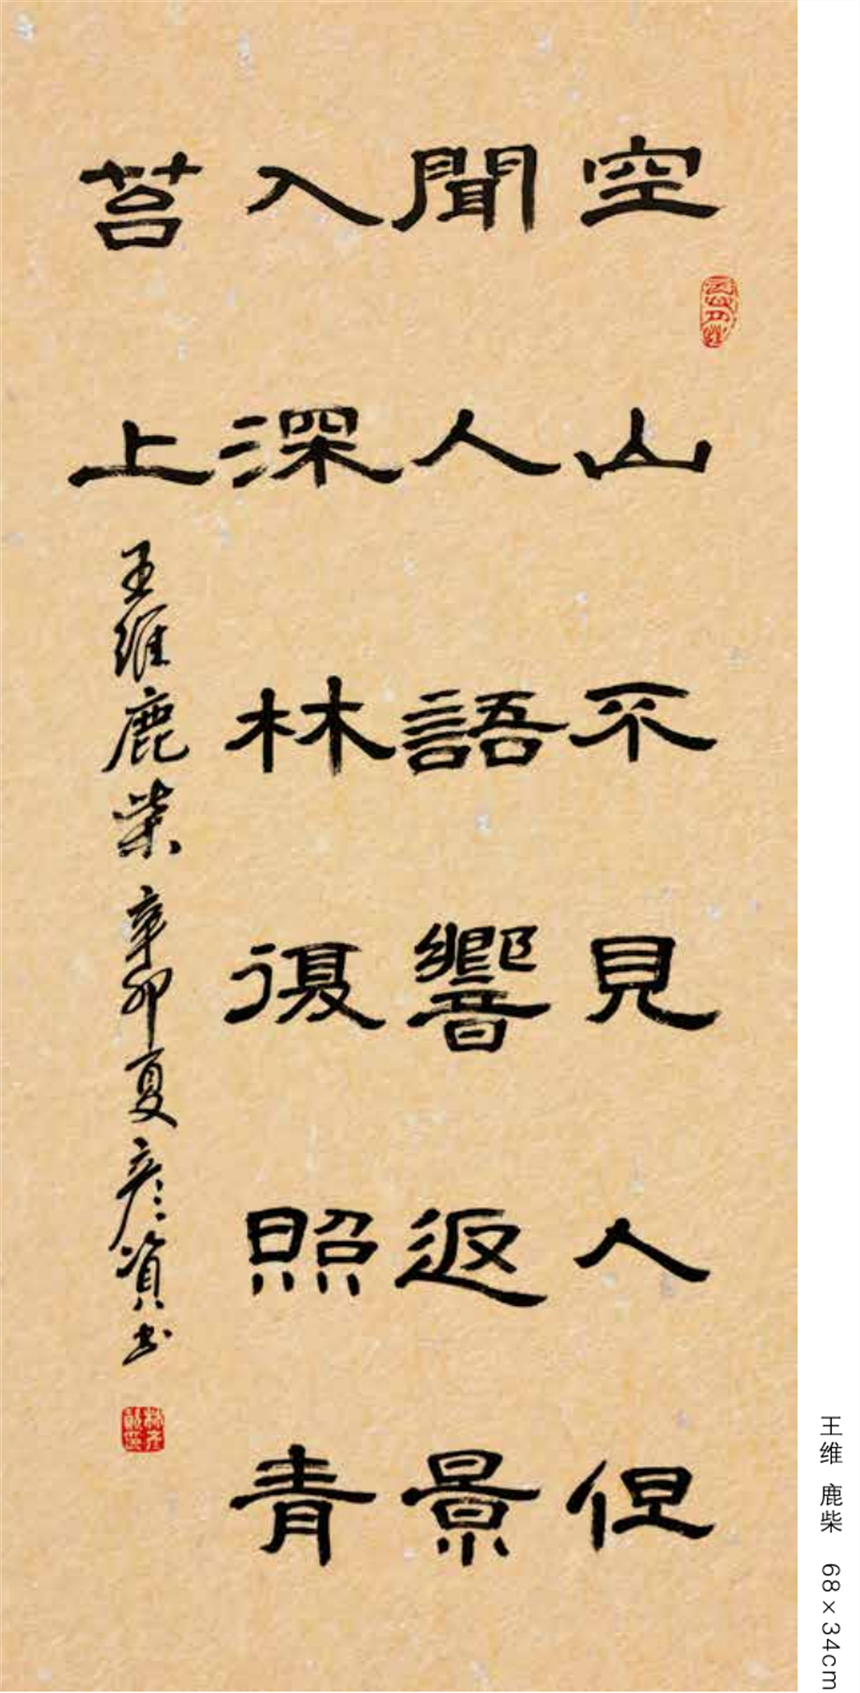 空山不見人但
聞人語響返景
入深林復照青
苔上
王維鹿柴辛卯夏彦資书
王维 鹿柴 68×34cm